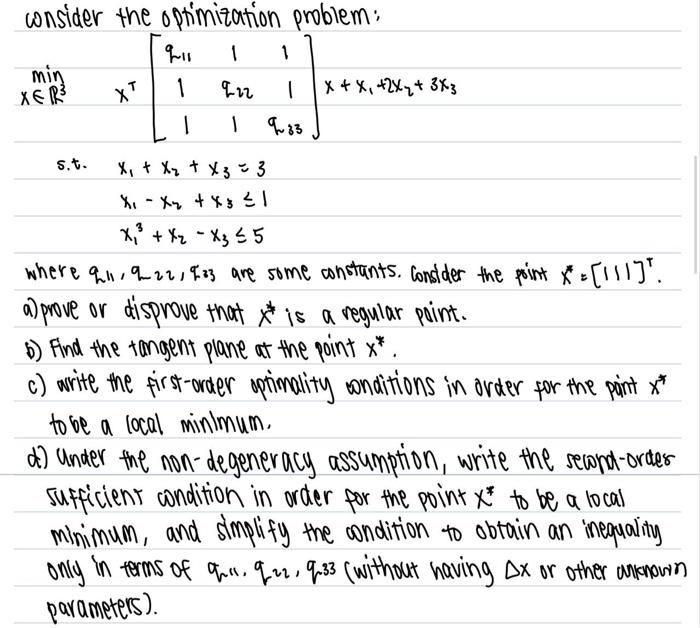 consider the optimization problem:
min x∈ℝ³ xᵀ [ q₁₁ 1 1 ; 1 q₂₂ 1 ; 1 1 q₃₃ ] x + x₁ + 2x₂ + 3x₃
s.t. x₁ + x₂ + x₃ = 3
x₁ - x₂ + x₃ ≤ 1
x₁³ + x₂ - x₃ ≤ 5
where q₁₁, q₂₂, q₃₃ are some constants. Consider the point x* = [111]ᵀ.
a) prove or disprove that x* is a regular point.
b) Find the tangent plane at the point x*.
c) write the first-order optimality conditions in order for the point x*
to be a local minimum.
d) Under the non-degeneracy assumption, write the second-order
sufficient condition in order for the point x* to be a local
minimum, and simplify the condition to obtain an inequality
only in terms of q₁₁, q₂₂, q₃₃ (without having Δx or other unknown
parameters).